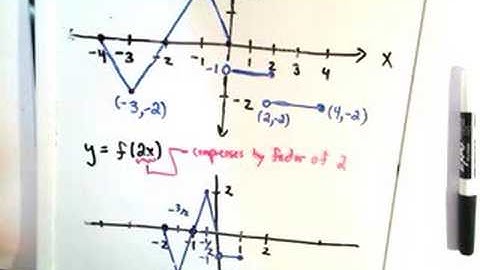 -4 -3 -2 -1 2 3 4 X
-1
(-3,-2) -2 (2,-2) (4,-2)
y = f(2x) compresses by factor of 2
2
-3/2
-2 -1 -1/2 1 2
-1